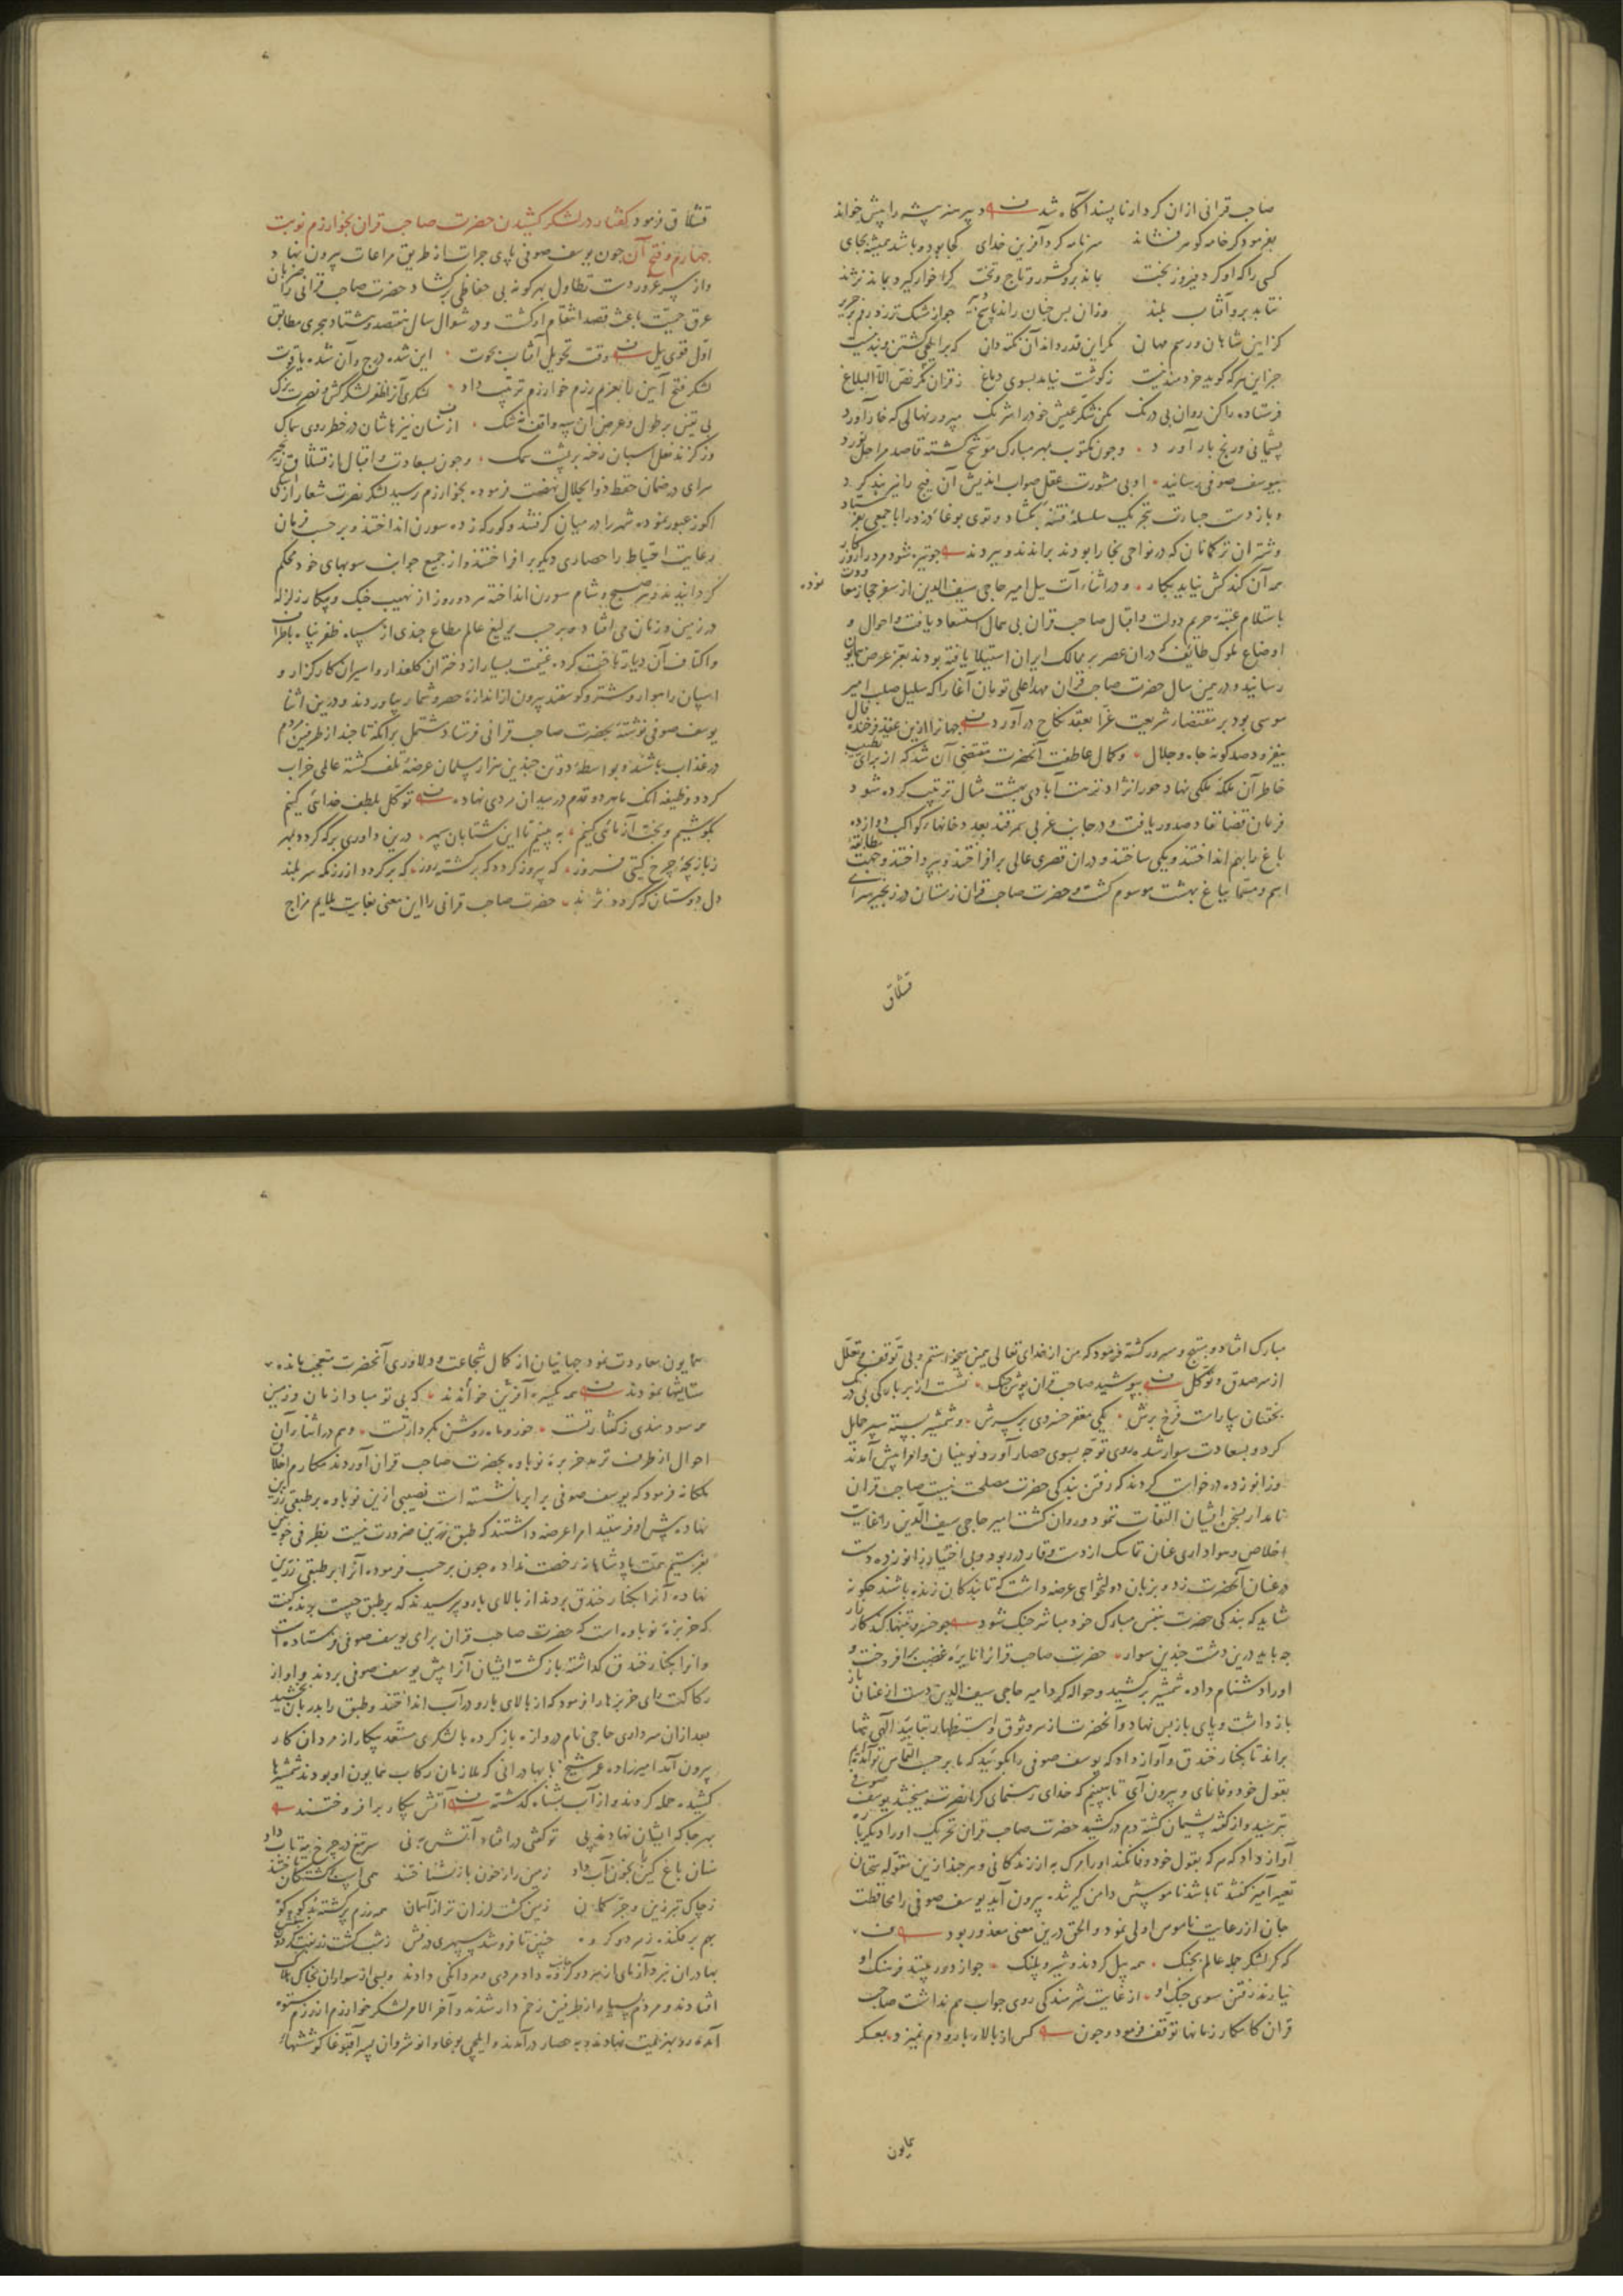 صاحب قرانی ازان کردار ناپسند آگاه شد دبیر هنر پیشه را پیش خواند
بفرمود کز خامه گوهر فشاند سر نامه کرد آفرین خدای کجا بود و باشد همیشه بجای
کسی را که او کرد پیروز بخت بماند برو کشور و تاج و تخت کرا خوار گیرد بماند نژند
نتابد برو آفتاب بلند وزان پس چنان راند پاسخ
کز آیین شاهان و رسم مهان مگر این قدر داند آن نکته دان که بر ایلچی کشتن و بند نیست
جز این هر که گوید خردمند نیست ز گوشت نیاید بسوی دماغ ز قرآن مگر نص الا البلاغ
فرستاده را کن روان بی درنگ مکن شکر عیش خود را شرنگ مپرور نهالی که خار آورد
پشیمانی و رنج بار آورد وچون مکتوب بمهر مبارک موشح گشته قاصد مراحل
بیوسف صوفی رسانید او بی مشورت عقل صواب اندیش آن را نیز بند کرد
و باز دست جسارت بتحریک سلسله فتنه بگشاد و توی بوغا دزد را با جمعی
و شتران ترکمانان که در نواحی بخارا بودند براندند و ببردند چو تیره شود مرد را روزگار
همه آن کند کش نیاید بکار و در اثناء آن ییل امیر حاجی سیف الدین از سفر حجاز معاودت نموده
باستلام عتبه حریم دولت و اقبال صاحب قران بی همال استسعاد یافت و احوال و
اوضاع ملوک طائف که دران عصر بر ممالک ایران استیلا یافته بودند بعز عرض همایون
رسانید و در همین سال حضرت صاحب قران مهد اعلی تومان آغا را که سلیل صلب امیر
موسی بود بر مقتضاء شریعت غرا بعقد نکاح در آورد جهانرا ازین عقد فرخنده فال
بیفزود صد گونه جاه و جلال و کمال عاطفت آنحضرت مقتضی آن شد که از برای تطییب
خاطر آن ملکه ملکی نهاد حورا نژاد نزهت آبادی بهشت مثال ترتیب کرده شود
فرمان قضا نفاذ صدور یافت و در جانب غربی سمرقند بعدد خانهاء کواکب دوازده
باغ را بهم انداختند و یکی ساختند و دران قصری عالی برافراختند و بپرداختند و جهت مطابقه
اسم و مسما بباغ بهشت موسوم گشت و حضرت صاحب قران زمستان در زنجیر سرای
قشلاق
قشلاق فرمود گفتار در لشکر کشیدن حضرت صاحب قران بخوارزم نوبت
چهارم و فتح آن چون یوسف صوفی پای جرات از طریق مراعات بیرون نهاد و
و از سر غرور دست تطاول بهر گونه بی حفاظی برگشاد حضرت صاحب قرانی را
عرق حمیت باعث قصد انتقام او گشت و در شوال سال هفتصد و هشتاد هجری مطابق
اول قوی ییل وقت تحویل آفتاب بحوت این شده درج و آن شده یاقوت
لشکر فتح آیین را بعزم رزم خوارزم ترتیب داد لشکری از ظفر لشکر کش و نصرت یزک
بی یقین بر طول و عرض آن سپه واقف نه شک از سنان نیزهاشان در خطر روی سماک
وز گزند نعل اسبان رخنه بر پشت سمک وچون بسعادت و اقبال از قشلاق زنجیر
سرای در ضمان حفظ ذوالجلال نهضت فرموده بخوارزم رسید لشکر نصرت شعار از اسکی
اکوز عبور نموده شهر را در میان گرفتند و کورکه زده سورن انداختند و بر حسب فرمان
رعایت احتیاط را حصاری دیگر برافراختند و از جمیع جوانب سوبهای خود محکم
گردانیدند و هر صبح و شام سورن انداخته هر دو روز از نهیب جنگ و پیکار زلزله
در زمین و زمان می افتاد و بر حسب یرلیغ عالم مطاع چندی از سپاه ظفر پناه باطراف
و اکناف آن دیار تاخت کرده غنیمت بسیار از دختران گلعذار و اسیران کارگزار و
اسپان راهوار و شتر و گوسفند بیرون از اندازه حصر و شمار بیاوردند و درین اثنا
یوسف صوفی نوشته بحضرت صاحب قرانی فرستاد مشتمل بر آنکه تا چند از طرفین مردم
در عذاب باشند و بواسطه دو تن چندین هزار مسلمان عرضه تلف گشته عالمی خراب
گردد وظیفه آنکه ما هر دو قدم در میدان مردی نهاده توکل بلطف خدائی کنیم
بکوشیم و بخت آزمائی کنیم به بینیم تا این شتابان سپهر درین داوری بر که گردد بمهر
ز بازیچه چرخ گیتی فروز که پیروز گردد که برگشته روز که برگردد از رزمگه سر بلند
دل دوستان که گردد نژند حضرت صاحب قرانی را این معنی بغایت ملایم مزاج
مبارک افتاد و مبتهج و مسرور گشته فرمود که من از خدای تعالی همین میخواستم و بی توقف و تعلل
از سر صدق و توکل بپوشید صاحب قران پوش جنگ نشست از بر بارگی بی درنگ
بخفتان بیاراست فرخ برش یکی مغفر خسروی بر سرش و شمشیر بسته سپر حمایل
کرد و بسعادت سوار شده روی توجه بسوی حصار آورد نویینان و امرا پیش آمدند
و زانو زده درخواست کردند که رفتن بندگی حضرت مصلحت نیست صاحب قران
نامدار بسخن ایشان التفات ننمود و روان گشت امیر حاجی سیف الدین را غایت
اخلاص و هواداری عنان تماسک از دست وقار در ربود و بی اختیار زانو زده دست
در عنان آنحضرت زد و بزبان دولتخواهی عرضه داشت که تا بندگان زنده باشند چگونه
شاید که بندگی حضرت بنفس مبارک خود مباشر جنگ شود چو خسرو بتنها کند کارزار
چه باید درین دشت چندین سوار حضرت صاحب قرانرا نایره غضب برافروخت و
او را دشنام داده شمشیر برکشید و حواله کرد امیر حاجی سیف الدین دست از عنان
باز داشت و پای باز پس نهاد و آنحضرت از سر وثوق و استظهار بتایید الهی تنها
براند تا بکنار خندق و آواز داد که یوسف صوفی را بگوئید که ما بر حسب التماس تو آمدیم
بقول خود وفا نمای و بیرون آی تا ببینیم که خدای رهنمای کرا نصرت میبخشد یوسف صوفی
بترسید و از گفته پشیمان گشته دم درکشید حضرت صاحب قران تحریک او را دیگر بار
آواز داد که هر که بقول خود وفا نکند او را مرگ به از زندگانی و هر چند ازین مقوله سخنان
تعییر آمیز گفتند تا باشد ناموسش دامن گیر شده بیرون آید یوسف صوفی را محافظت
جان از رعایت ناموس اولی نمود و الحق درین معنی معذور بود
که گر لشکر جمله عالم بجنگ همه پیل گردند و شیر و پلنگ چو از دور بینند فرهنگ او
نیارند رفتن سوی جنگ او از غایت شرمندگی روی جواب هم نداشت صاحب
قران کامکار زمانها توقف فرمود و چون کس از بالاء بارو دم نمیزد بمعسکر
همایون
همایون معاودت نمود جهانیان از کمال شجاعت و دلاوری آنحضرت متعجب مانده
ستایشها نمودند همه یکسره آفرین خواندند که بی تو مباد از زمان و زمین
خرد سود مندی ز گفتار تست خور و ماه روشن بکردار تست و هم در اثناء آن
احوال از طرف ترمد خربزه نوباوه بحضرت صاحب قران آوردند مکارم اخلاق
ملکانه فرمود که یوسف صوفی برابر ما نشسته است نصیبی ازین نوباوه بر طبقی زرین
نهاده پیش او فرستید امرا عرضه داشتند که طبق زرین ضرورت نیست بظرفی چوبین
بفرستیم همت پادشاهانه رخصت نداد چون بر حسب فرموده آنرا بر طبقی زرین
نهاده آنرا بکنار خندق بردند از بالای بارو پرسیدند که بر طبق چیست بوند گفت
که خربزه نوباوه است که حضرت صاحب قران برای یوسف صوفی فرستاده است
و آنرا بکنار خندق گذاشته بازگشت ایشان آنرا پیش یوسف صوفی بردند و او از
رکاکت رای خربزها را فرمود که از بالای بارو در آب انداختند و طبق را بدربان بخشید
بعد ازان سرداری حاجی نام دروازه باز کرده با لشکری مستعد پیکار از مردان کار
بیرون آمد امیرزاده عمر شیخ با بهادرانی که ملازمان رکاب همایون او بودند شمشیرها
کشیده حمله کردند و از آب بشناه گذشته آتش پیکار برافروختند
بهر جا که ایشان نهادند پی تو گفتی در افتاد آتش به نی سر تیغ در چرخ مه تاب داد
سنان باغ کین را بخون آب داد زمین را ز خون باز نشناختند همی اسپ بر کشتگان تاختند
ز چاک تبرزین و جر کمان زمین گشت لرزان تر از آسمان همه رزم پر کشته بد کوه کوه
بهم برفکنده ز هر دو گروه چنین تا فروشد سپهری درفش ز شب گشت زربفت گردون بنفش
بهادران نبرد آزمای از هر دو گروه داد مردی و مردانگی دادند و بسی از سواران بخاک هلاک
افتادند و مردم بسیار از طرفین زخم دار شدند و آخر الامر لشکر خوارزم از رزم ستوه
آمده رو بهزیمت نهادند و به حصار درآمدند و ایلچی بوغا و انوشروان پسر آقبوغا کوششهاء